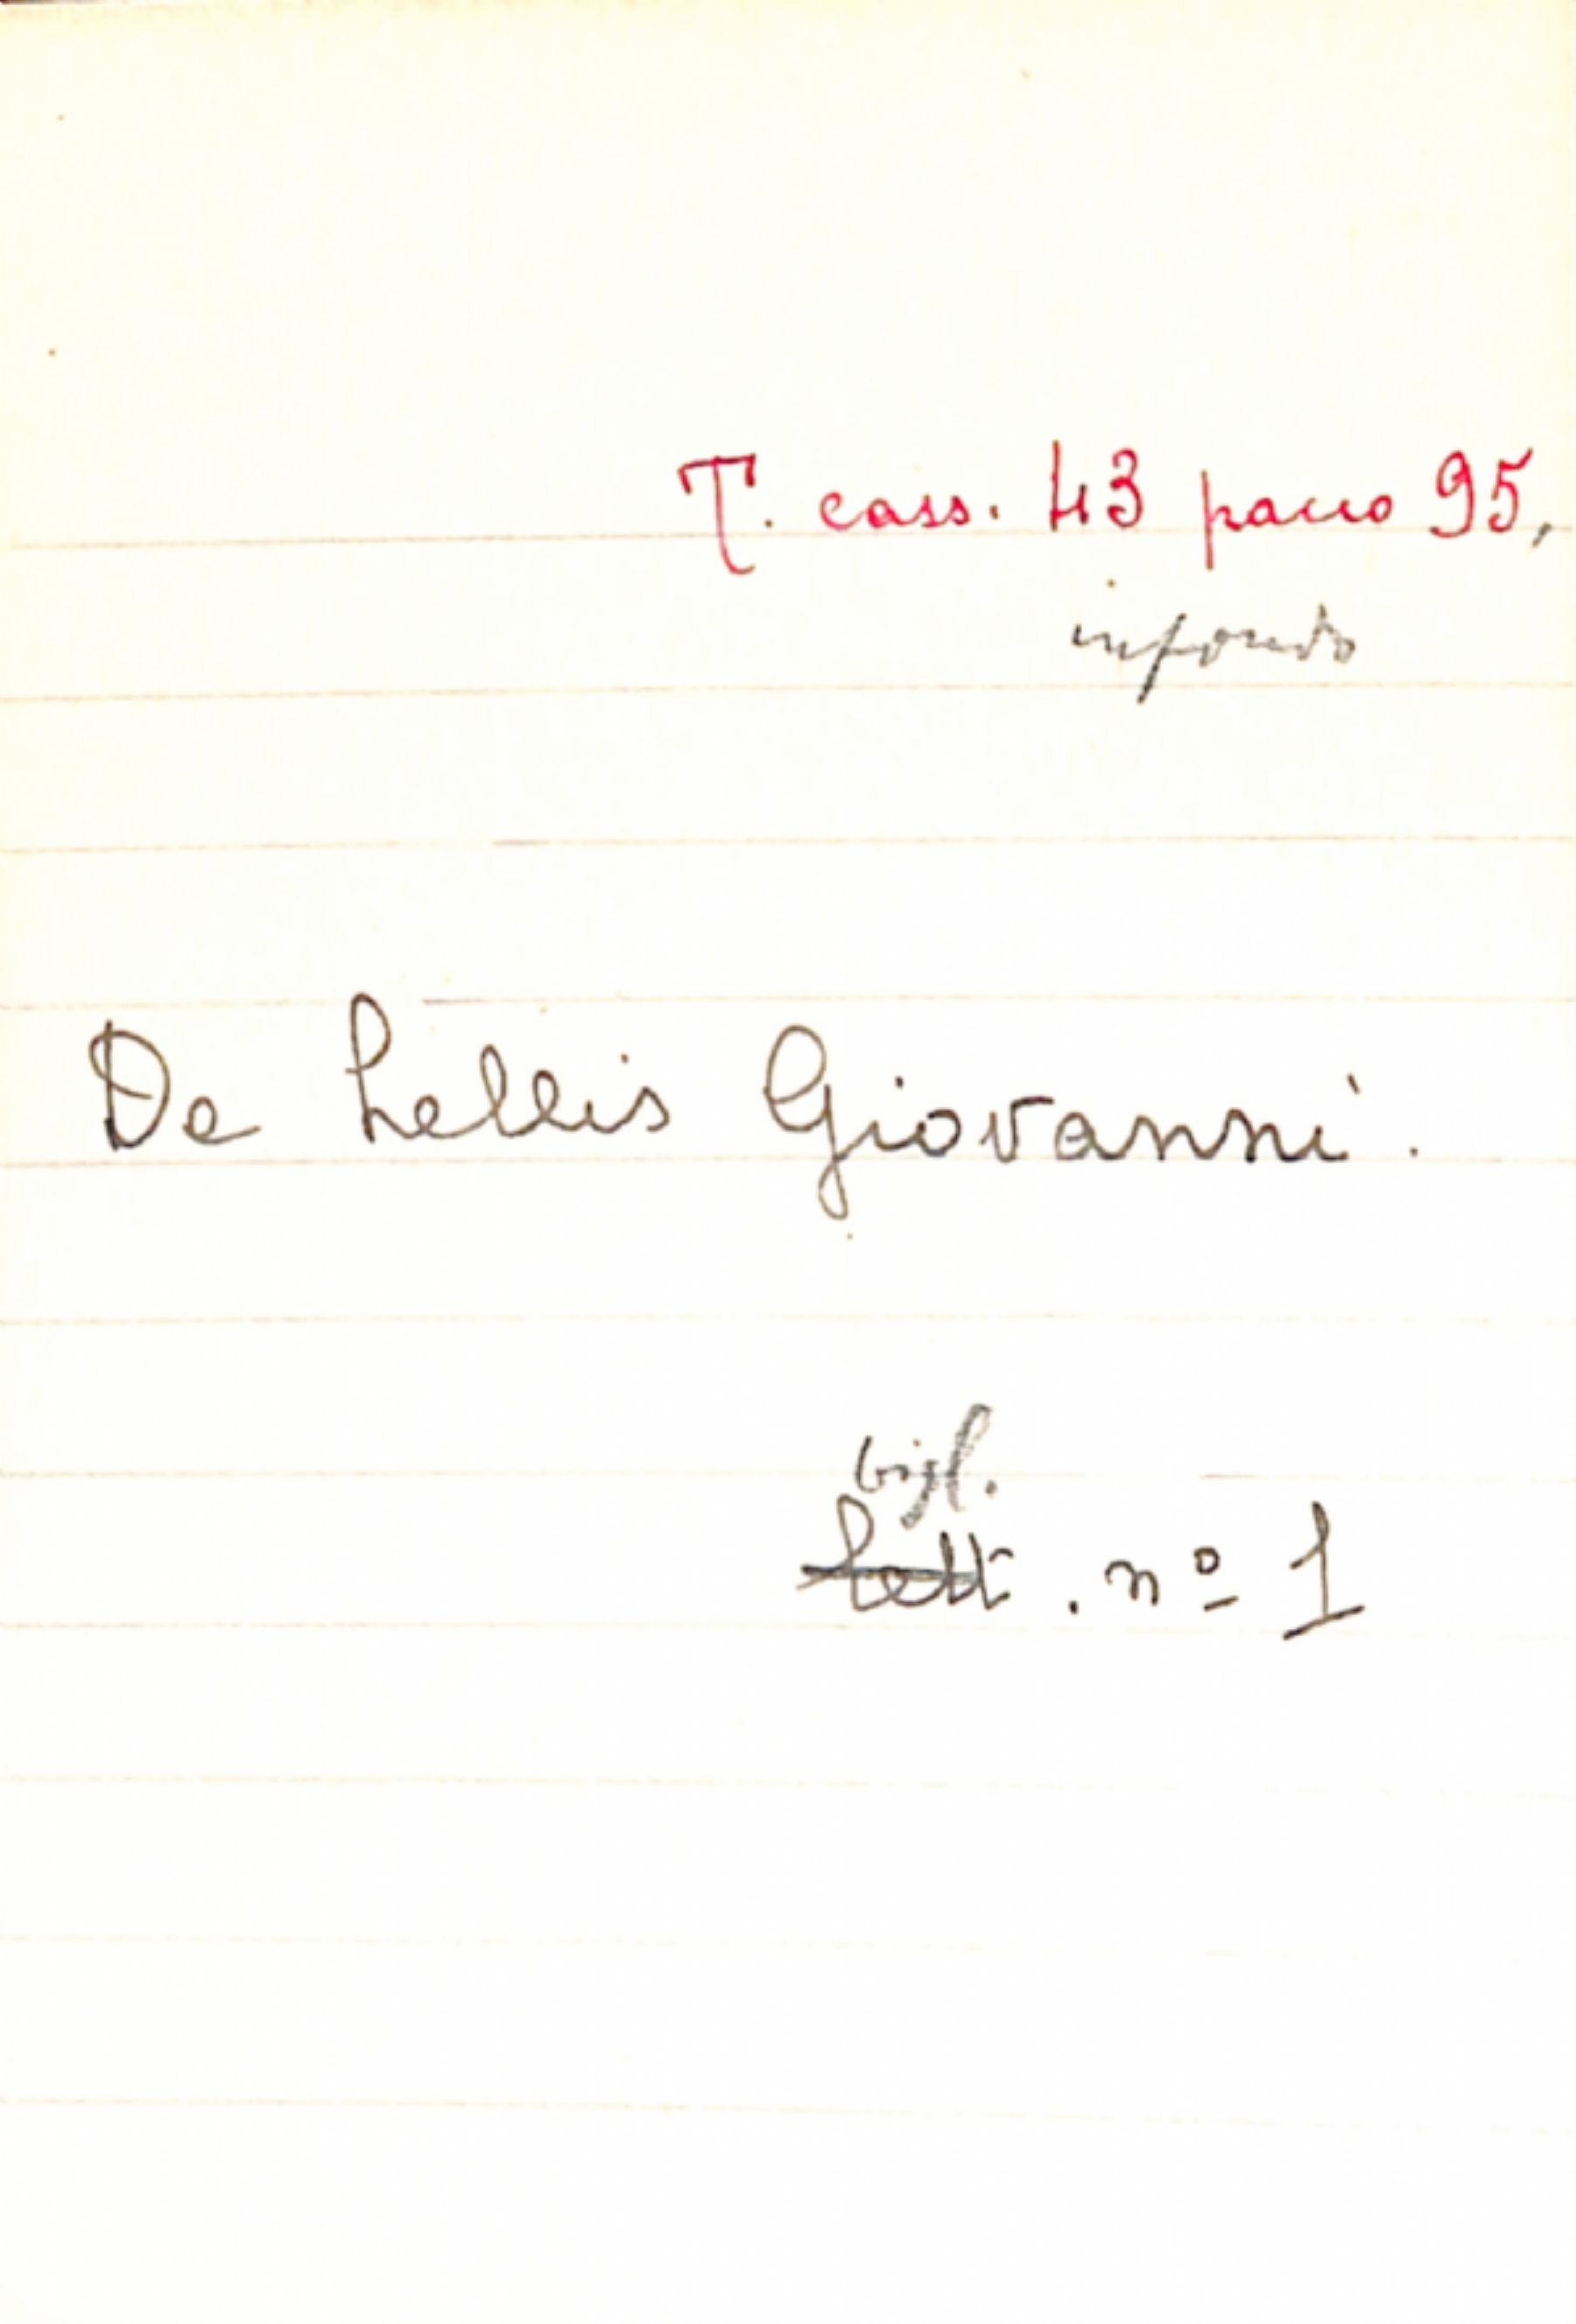 T. cass. 43 pacco 95,
in fondo
De Lellis Giovanni.
bigl.
Lett. nº 1